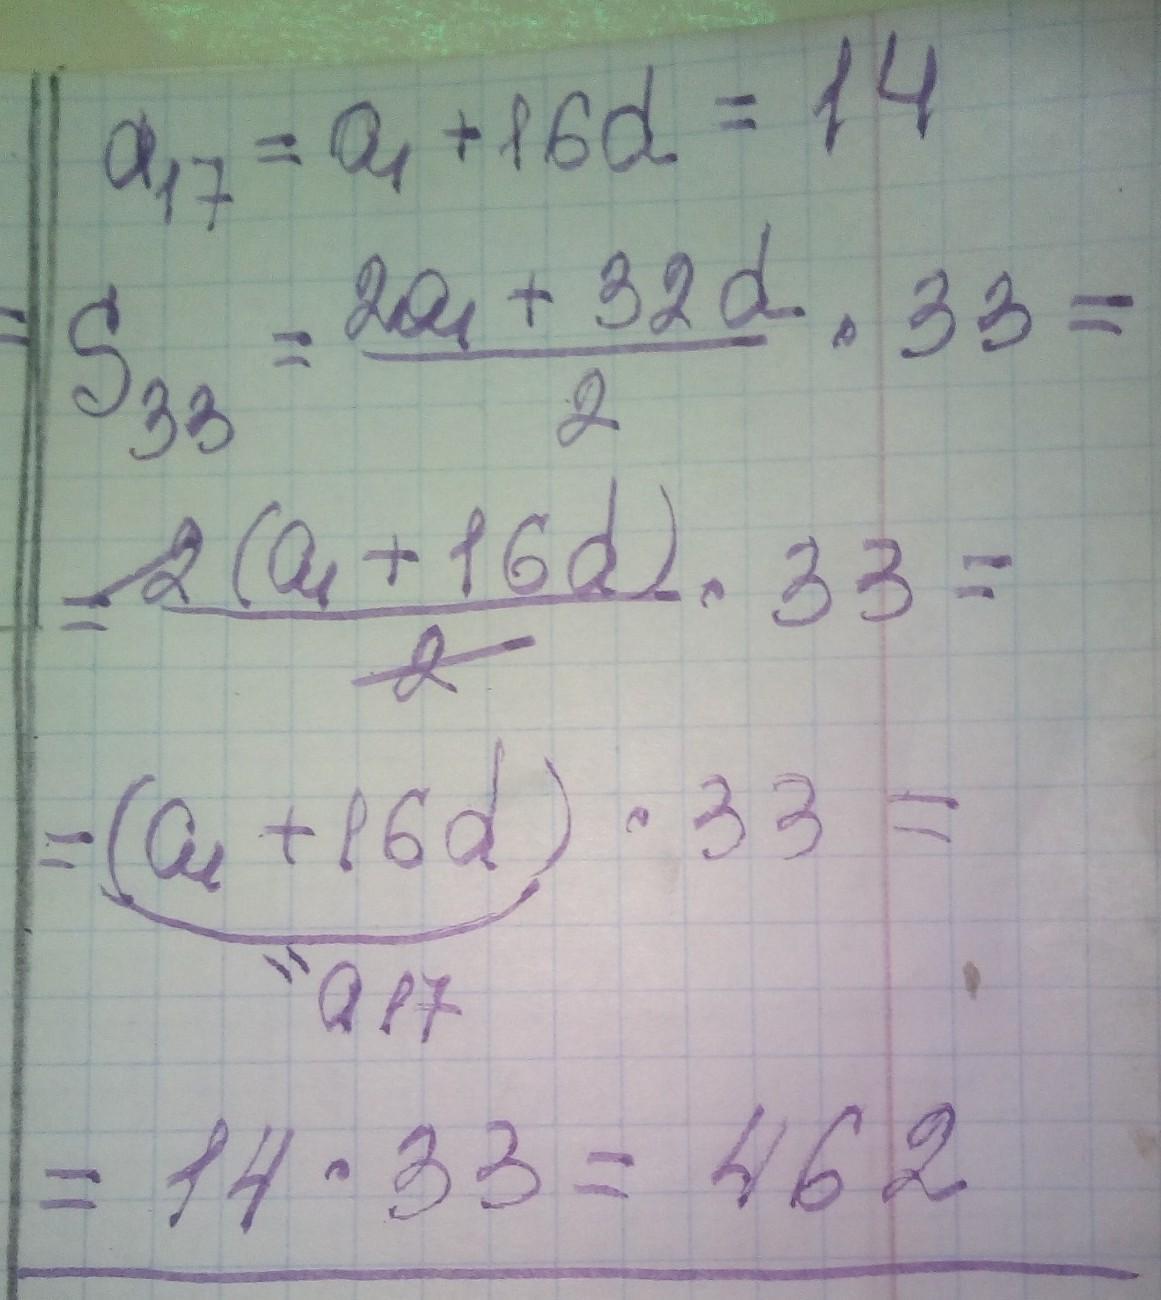 a₁₇ = a₁ + 16d = 14
S₃₃ = (2a₁ + 32d)/2 · 33 =
= 2(a₁ + 16d)/2 · 33 =
= (a₁ + 16d) · 33 =
= a₁₇
= 14 · 33 = 462